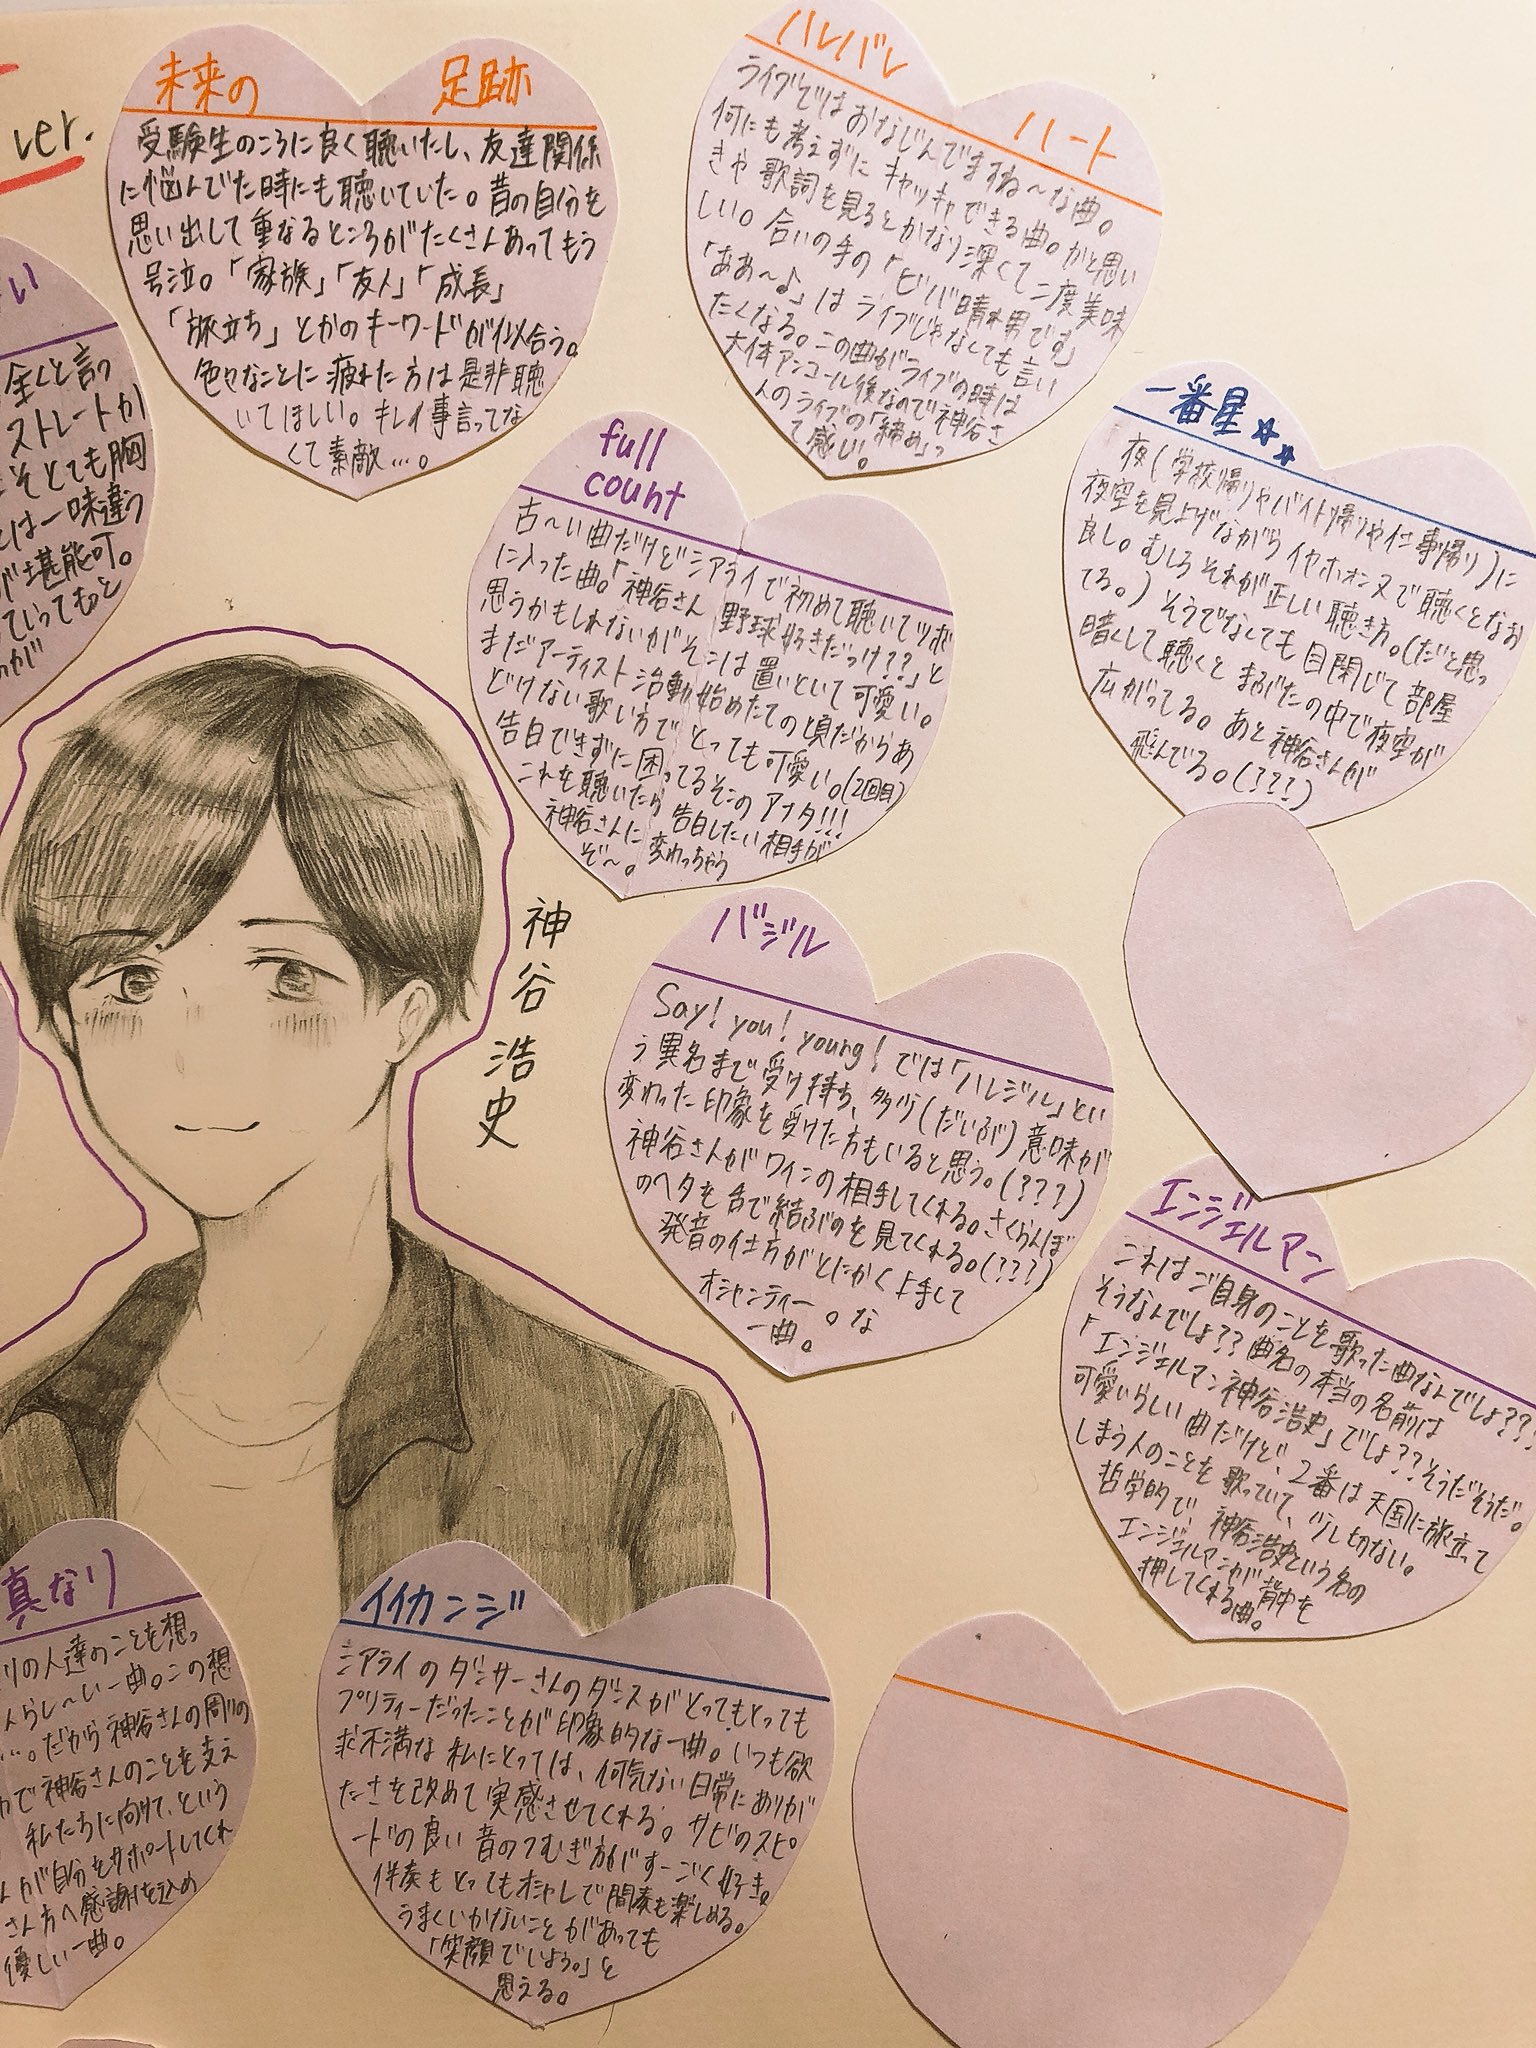 ver.
未来の 足跡
受験生のころに良く聴いたし、友達関係
に悩んでた時にも聴いていた。昔の自分を
思い出して重なるところがたくさんあってもう
号泣。「家族」「友人」「成長」
「旅立ち」とかのキーワードが似合う。
色々なことに疲れた方は是非聴
いてほしい。キレイ事言ってな
くて素敵…。
ハレバレ ハート
ライブではおなじんでますね〜な曲。
何にも考えずにキャッキャできる曲。かと思い
きや歌詞を見るとかなり深くて二度美味
しい。合いの手の「ビバ晴れ男です」
「ああ〜♪」はライブじゃなくても言い
たくなる。この曲がライブの時は
大体アンコール後なので神谷さ
んのライブの「締め」っ
て感じ。
い
全くと言っ
ストレートか
そとても胸
は一味違っ
が堪能可。
ていってもっと
が
full
count
古〜い曲だけどシアライで初めて聴いてツボ
に入った曲。「神谷さん野球好きだっけ??」と
思うかもしれないがそこは置いといて可愛い。
まだアーティスト活動始めたての頃だからあ
どけない歌い方でとっても可愛い。(2回目)
告白できずに困ってるそこのアナタ!!!
これを聴いたら告白したい相手が
神谷さんに変わっちゃう
ぞ〜。
一番星☆☆
夜(学校帰りやバイト帰りや仕事帰り)に
夜空を見上げながらイヤホンヌで聴くとなお
良し。むしろそれが正しい聴き方。(だと思っ
てる。)そうでなくても目閉じて部屋
暗くして聴くとまぶたの中で夜空が
広がってる。あと神谷さんが
飛んでる。(???)
神谷浩史
バジル
Say! you! young! では「ハレジル」とい
う異名まで受け持ち、多少(だいぶ)意味が
変わった印象を受けた方もいると思う。(???)
神谷さんがワインの相手してくれる。さくらんぼ
のヘタを舌で結ぶのを見てくれる。(???)
発音の仕方がとにかく上手して
オシャンティー。な
一曲。
エンジェルマン
これはご自身のことを歌った曲なんでしょ???
そうなんでしょ??曲名の本当の名前は
「エンジェルマン神谷浩史」でしょ??そうだそうだ。
可愛いらしい曲だけど、2番は天国に旅立って
しまう人のことを歌っていて、少し切ない。
哲学的で、神谷浩史という名の
エンジェルマンが背中を
押してくれる曲。
真なり
りの人達のことを想っ
んらし〜い一曲。この想
…。だから神谷さんの周りの
で神谷さんのことを支え
私たちに向けて、という
んが自分をサポートしてくれ
さん方へ感謝を込め
優しい一曲。
イイカンジ
シアライのダンサーさんのダンスがとってもとっても
プリティーだったことが印象的な一曲。いつも欲
求不満な私にとっては、何気ない日常にありが
たさを改めて実感させてくれる。サビのスピ
ードの良い音のつむぎ方がすーごく好き。
伴奏もとってもオシャレで間奏も楽しめる。
うまくいかないことがあっても
「笑顔でいよう。」と
思える。